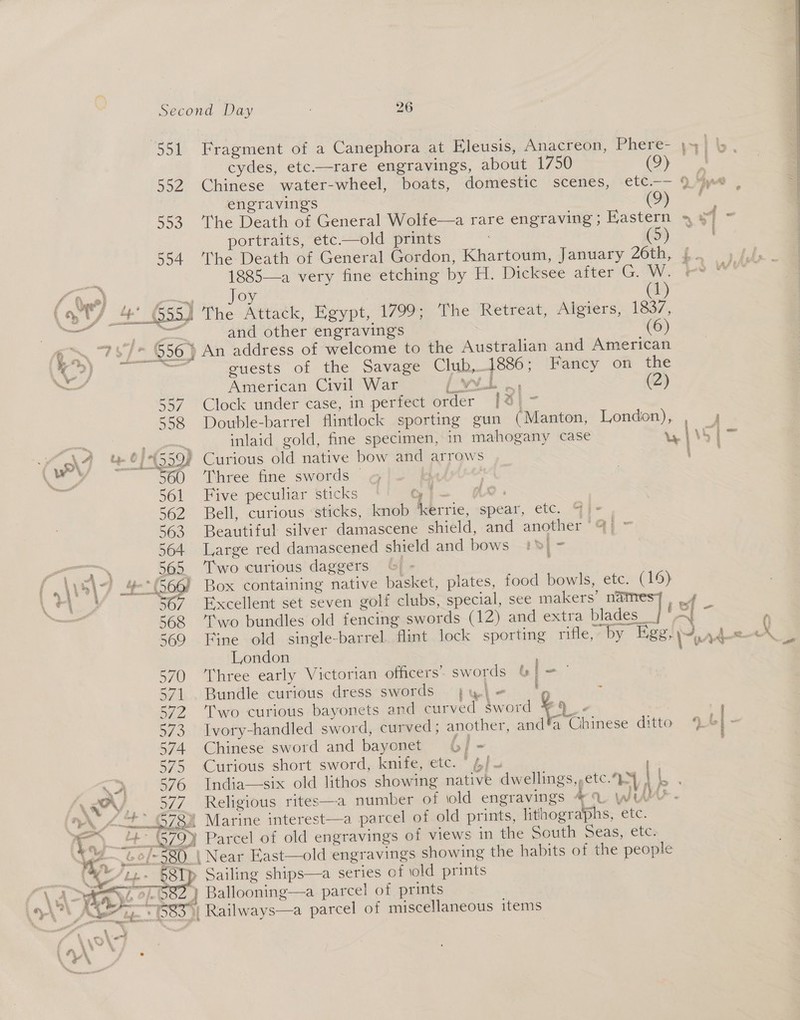 Second Day 26
551 Fragment of a Canephora at Eleusis, Anacreon, Phere-
cydes, etc.—rare engravings, about 1750 (9)
552 Chinese water-wheel, boats, domestic scenes, etc.—
engravings (9)
553 The Death of General Wolfe—a rare engraving; Eastern
portraits, etc.—old prints (5)
554 The Death of General Gordon, Khartoum, January 26th,
1885—a very fine etching by H. Dicksee after G. W.
Joy (1)
555 The Attack, Egypt, 1799; The Retreat, Algiers, 1837,
and other engravings (6)
556 An address of welcome to the Australian and American
guests of the Savage Club, 1886; Fancy on the
American Civil War (2)
557 Clock under case, in perfect order
558 Double-barrel flintlock sporting gun (Manton, London),
inlaid gold, fine specimen, in mahogany case
559 Curious old native bow and arrows
560 Three fine swords
561 Five peculiar sticks
562 Bell, curious sticks, knob kerrie, spear, etc.
563 Beautiful silver damascene shield, and another
564 Large red damascened shield and bows
565 Two curious daggers
566 Box containing native basket, plates, food bowls, etc. (16)
567 Excellent set seven golf clubs, special, see makers' names
568 Two bundles old fencing swords (12) and extra blades
569 Fine old single-barrel flint lock sporting rifle, by Egg,
London
570 Three early Victorian officers' swords
571 Bundle curious dress swords
572 Two curious bayonets and curved sword
573 Ivory-handled sword, curved; another, and a Chinese ditto
574 Chinese sword and bayonet
575 Curious short sword, knife, etc.
576 India—six old lithos showing native dwellings, etc.
577 Religious rites—a number of old engravings
578 Marine interest—a parcel of old prints, lithographs, etc.
579 Parcel of old engravings of views in the South Seas, etc.
580 Near East—old engravings showing the habits of the people
581 Sailing ships—a series of old prints
582 Ballooning—a parcel of prints
583 Railways—a parcel of miscellaneous items